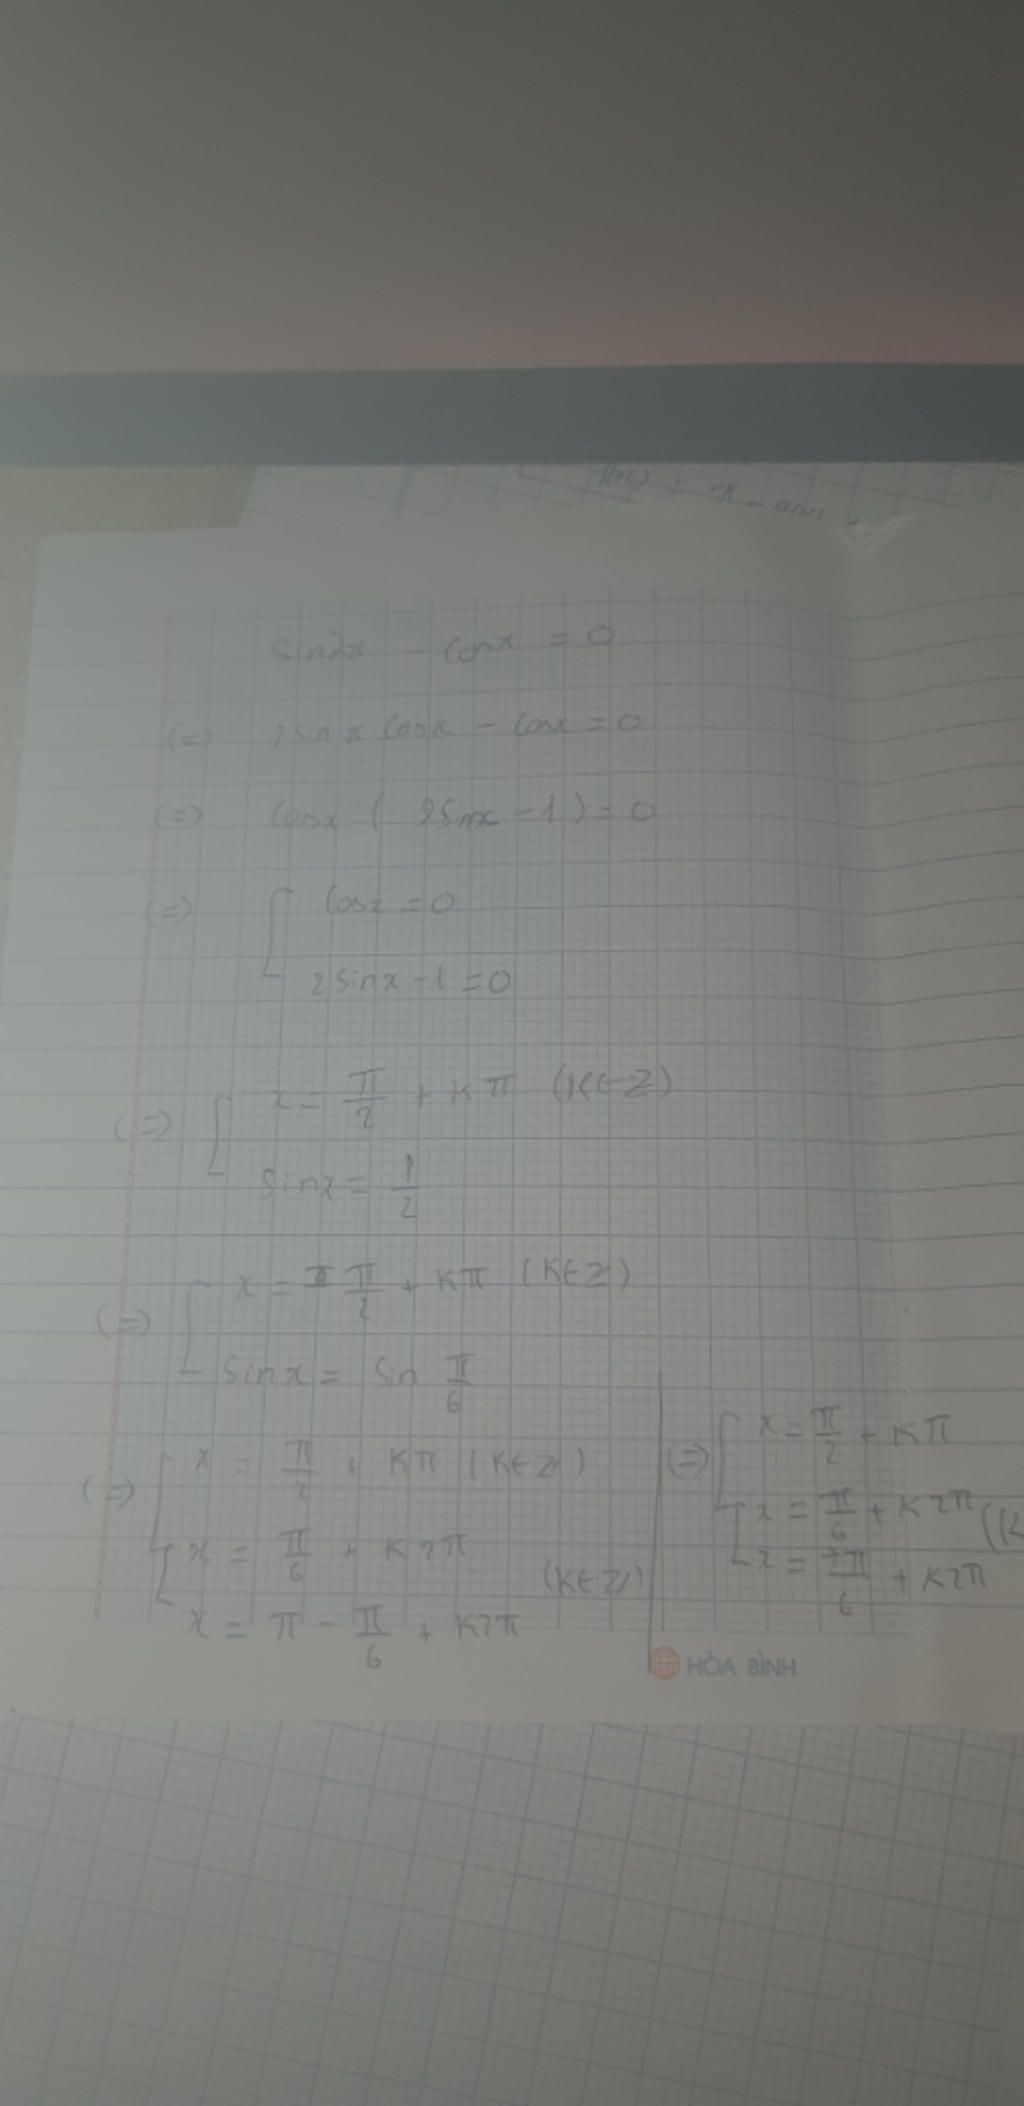 sin2x - cosx = 0
(=) 2sin x cosx - cosx = 0
(=) cosx ( 2sinx - 1 ) = 0
(=) [ cosx = 0
2sinx - 1 = 0
(=) [ x = π/2 + kπ (K∈Z)
sinx = 1/2
(=) [ x = π/2 + kπ (K∈Z)
sinx = sin π/6
(=) [ x = π/2 + kπ (K∈Z)
[ x = π/6 + k2π
x = π - π/6 + k2π (K∈Z)
(=) [ x = π/2 + kπ
[ x = π/6 + k2π (K
x = π/6 + k2π
HÒA BÌNH